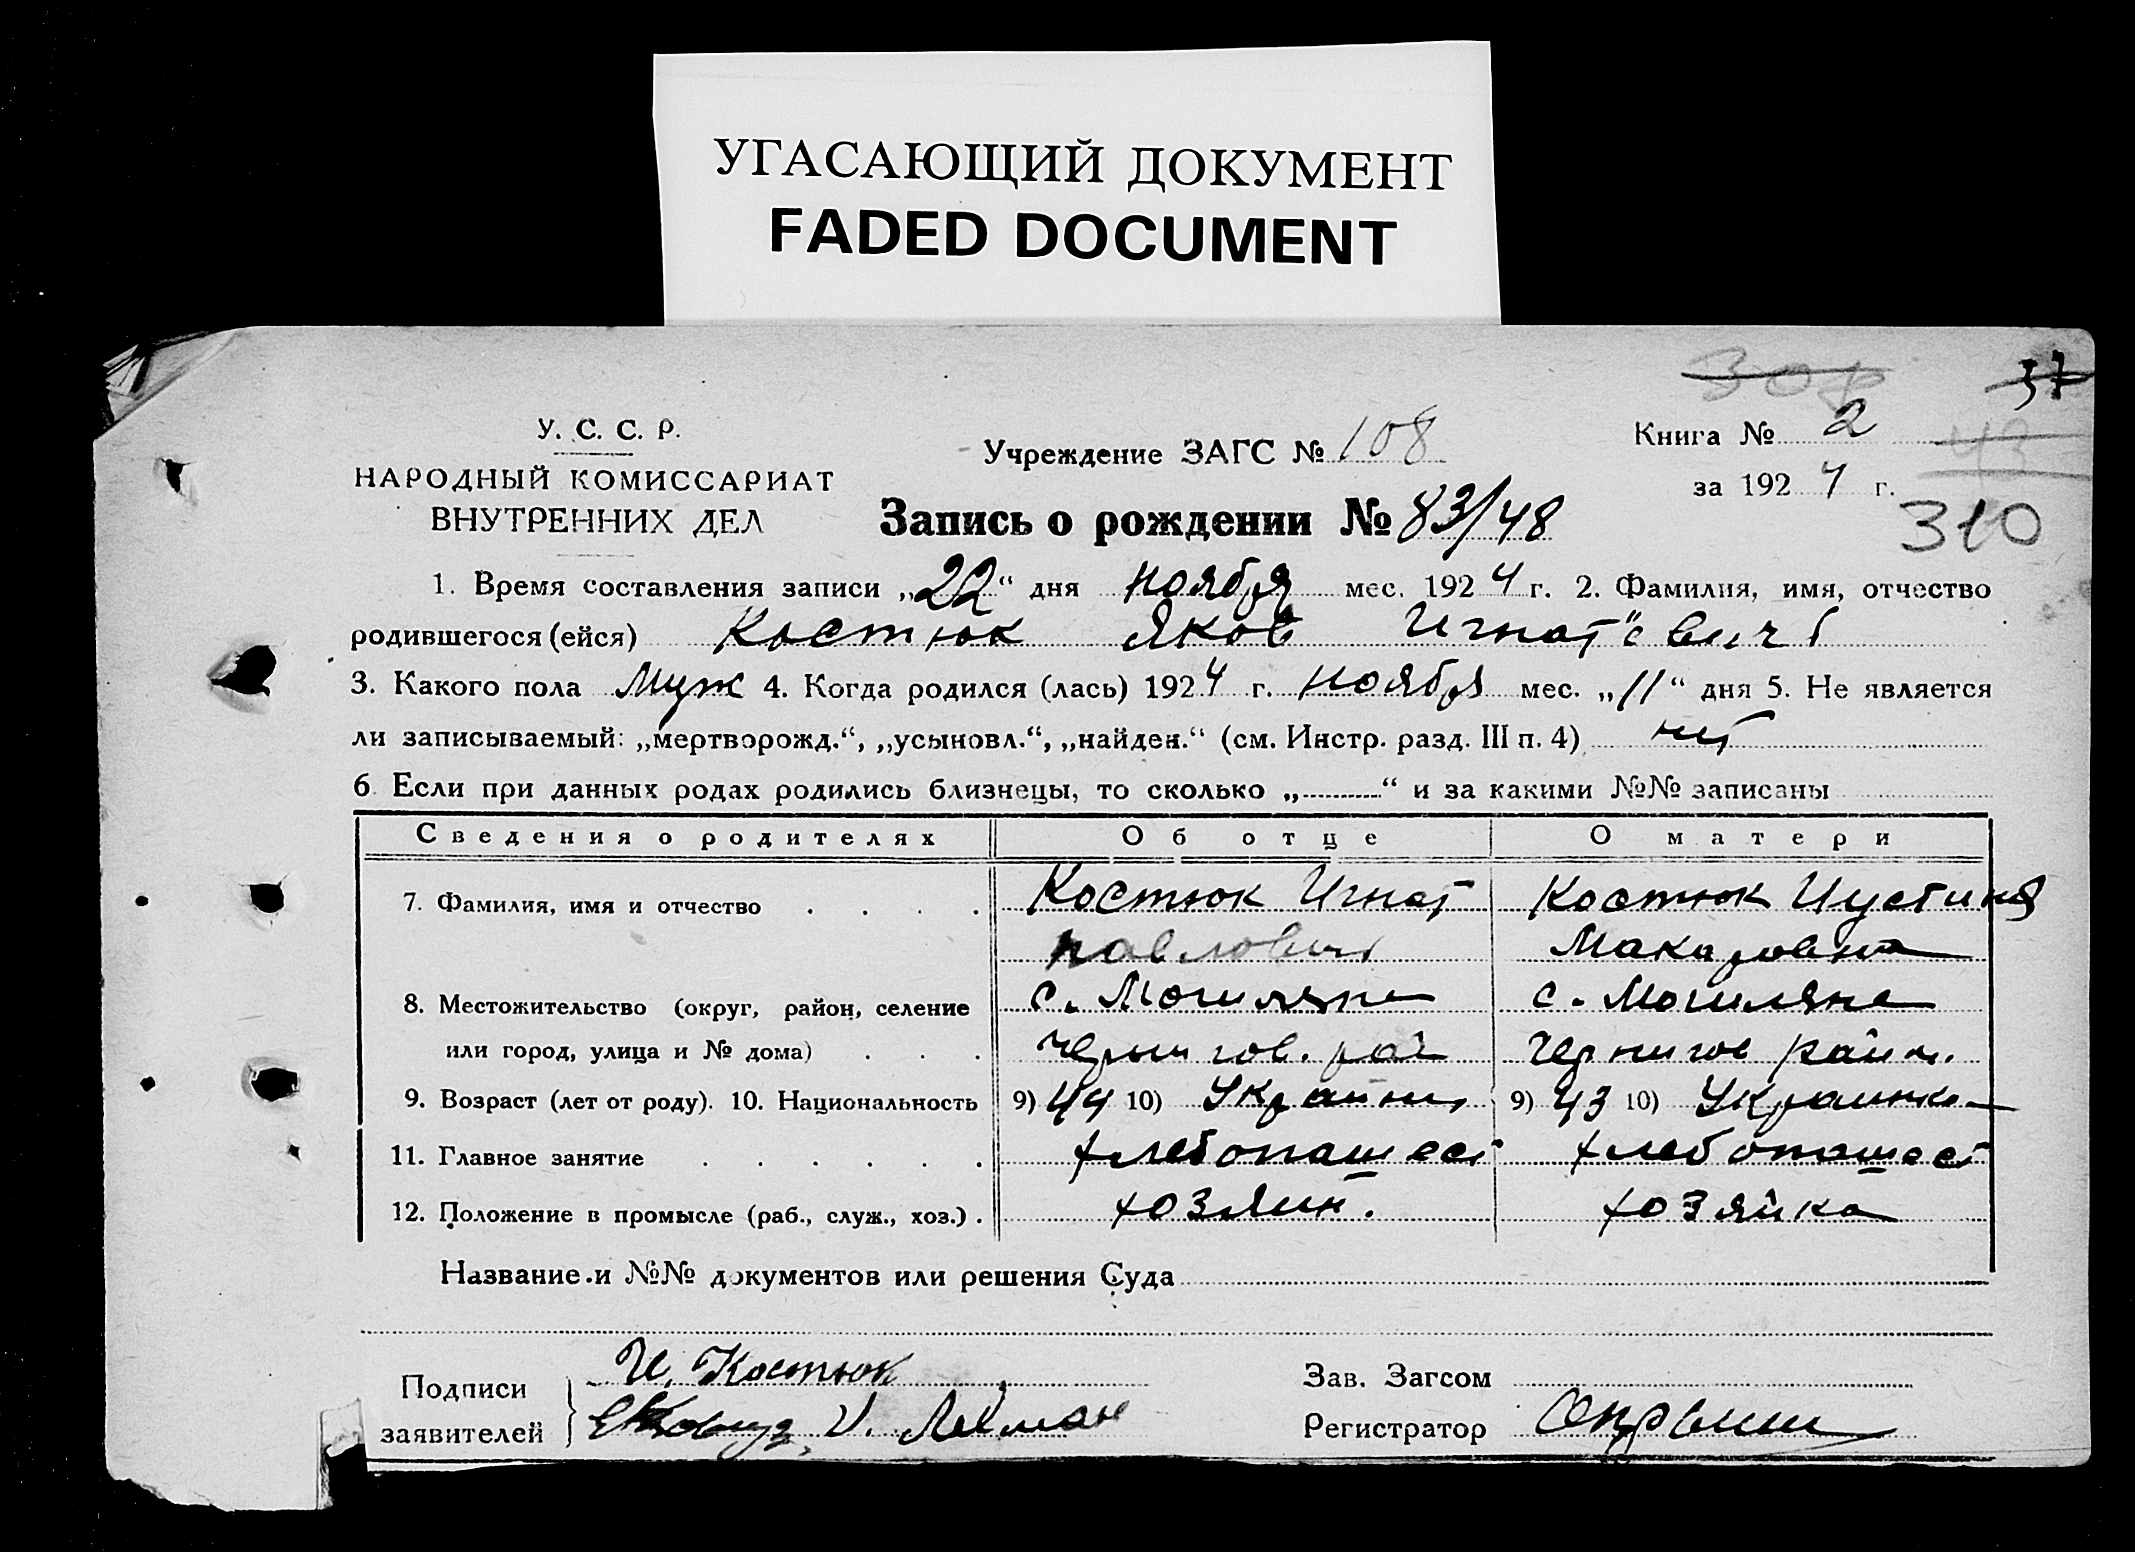 УГАСАЮЩИЙ ДОКУМЕНТ
FADED DOCUMENT
37
У. С. С. Р.
НАРОДНЫЙ КОМИССАРИАТ
ВНУТРЕННИХ ДЕЛ
Учреждение ЗАГС № 108
Книга № 2
за 1924 г.
43
310
Запись о рождении № 83/48
1. Время составления записи „22“ дня ноября мес. 1924 г. 2. Фамилия, имя, отчество
родившегося (ейся) Костюк Яков Игнатьевич
3. Какого пола Муж 4. Когда родился (лась) 1924 г. ноября мес. „11“ дня 5. Не является
ли записываемый: „мертворожд.“, „усыновл.“, „найден.“ (см. Инстр. разд. III п. 4) нет
6. Если при данных родах родились близнецы, то сколько „..........“ и за какими №№ записаны
Сведения о родителях Об отце О матери
7. Фамилия, имя и отчество . . . . Костюк Игнат Костюк Иустиния
Павлович Макаровна
8. Местожительство (округ, район, селение с. Могиляне с. Могиляне
или город, улица и № дома) . . . Чернигов. рай Чернигов район.
9. Возраст (лет от роду). 10. Национальность 9) 44 10) Украинец 9) 43 10) Украинка
11. Главное занятие . . . . . . хлебопашест хлебопашест
12. Положение в промысле (раб., служ., хоз.) . хозяин. хозяйка
Название и №№ документов или решения Суда
Подписи
заявителей
И. Костюк
Зав. Загсом
Регистратор